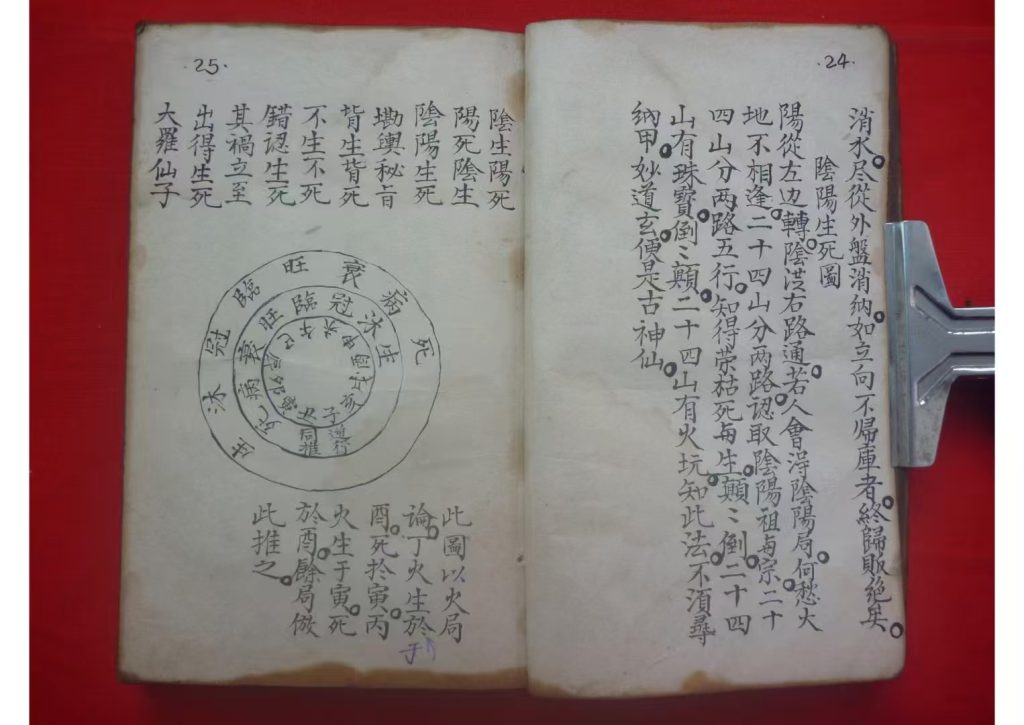 24
消水。尽從外盤消納。如立向不帰庫者。終歸敗絕矣。
陰陽生死圖
陽從左边轉。陰從右路通。若人會淂陰陽局。何愁大
地不相逢。二十四山分两路。認取陰陽祖与宗。二十
四山分两路五行。知得荣枯死与生。顛〻倒。二十四
山有珠寶。倒〻顛。二十四山有火坑。知此法。不湏尋
納甲。妙道玄。便是古神仙。
25
陰生陽死
陽死陰生
陰陽生死
堪輿秘旨
背生背死
不生不死
錯認生死
其禍立至
出得生死
大羅仙子
生沐冠臨旺衰病死
死病衰旺臨冠沐生
巳午未申酉戌亥子
逆行
同推
此圖以火局
論。丁火生於
于
酉。死於寅。丙
火生于寅。死
於酉。餘局倣
此推之。